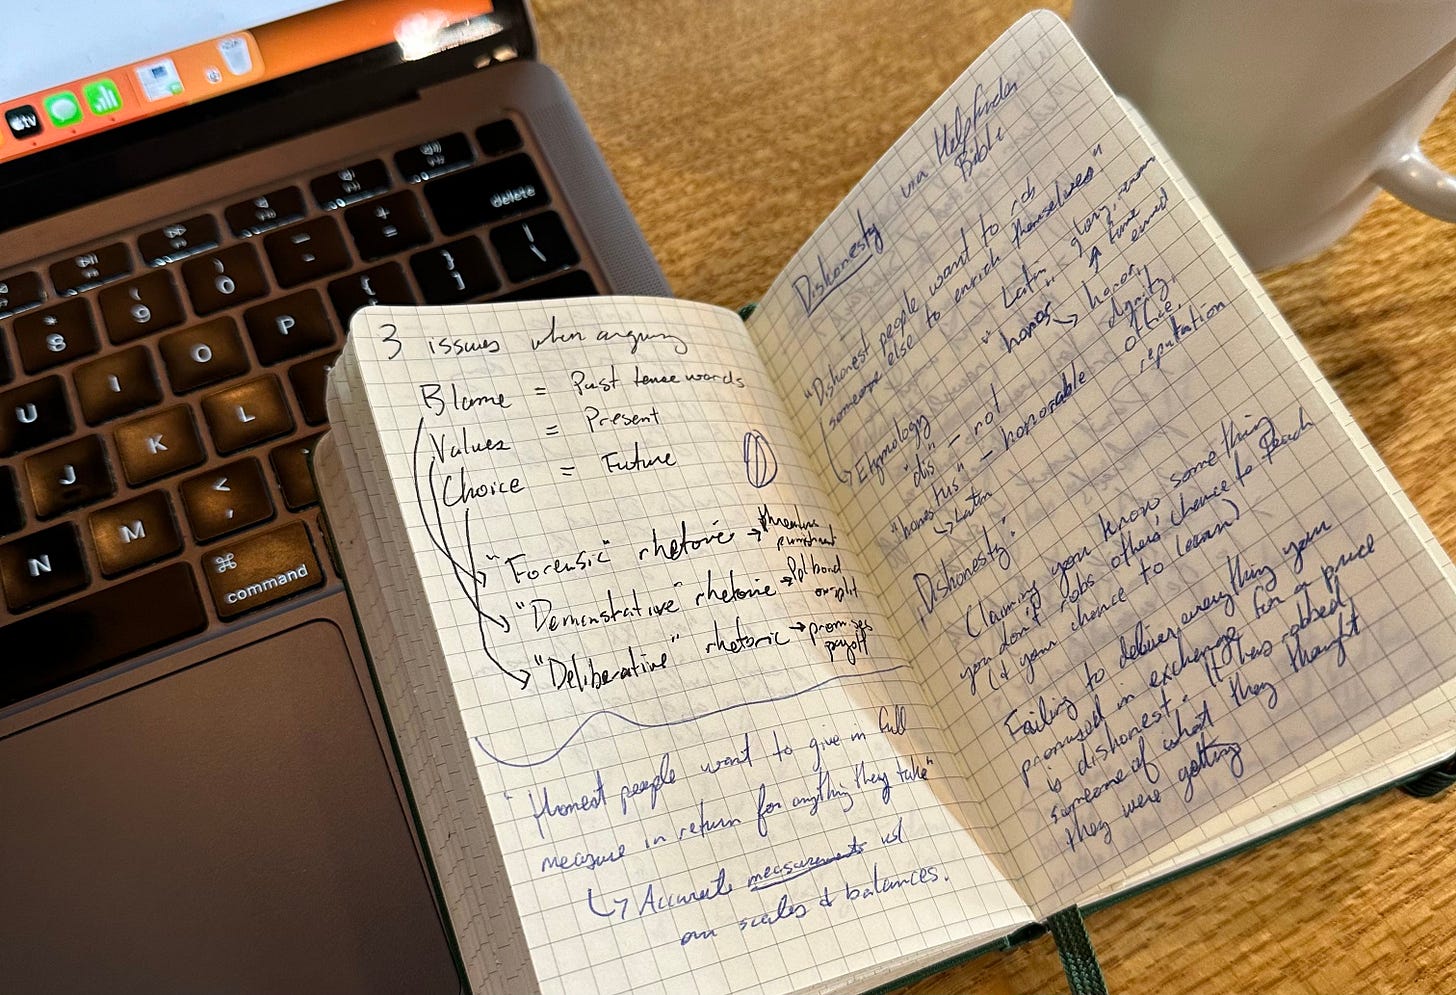 tv
delete
command
⌘
+
=
_
-
)
0
(
9
*
8
}
]
{
[
|
\
P
O
I
U
L
K
J
<
,
M
N
3 issues when arguing
Blame = Past tense words
Values = Present
Choice = Future
"Forensic" rhetoric → threatens
punishment
"Demonstrative" rhetoric → Ppl bond
or split
"Deliberative" rhetoric → promises
payoff
"Honest people want to give in full
measure in return for anything they take"
↳ Accurate measurements w/
our scales & balances.
Dishonesty via Helpfinder
Bible
"Dishonest people want to rob
someone else to enrich themselves"
↳ Etymology
"dis" - not
"honestus" - honorable
↳ Latin
Latin
"honos" → honor,
dignity,
office,
reputation
glory, renown
↑ fame
earned
Dishonesty:
Claiming you know something
you don't robs others' chance to teach
(& your chance to learn)
Failing to deliver everything you
promised in exchange for a price
is dishonest. It has robbed
someone of what they thought
they were getting